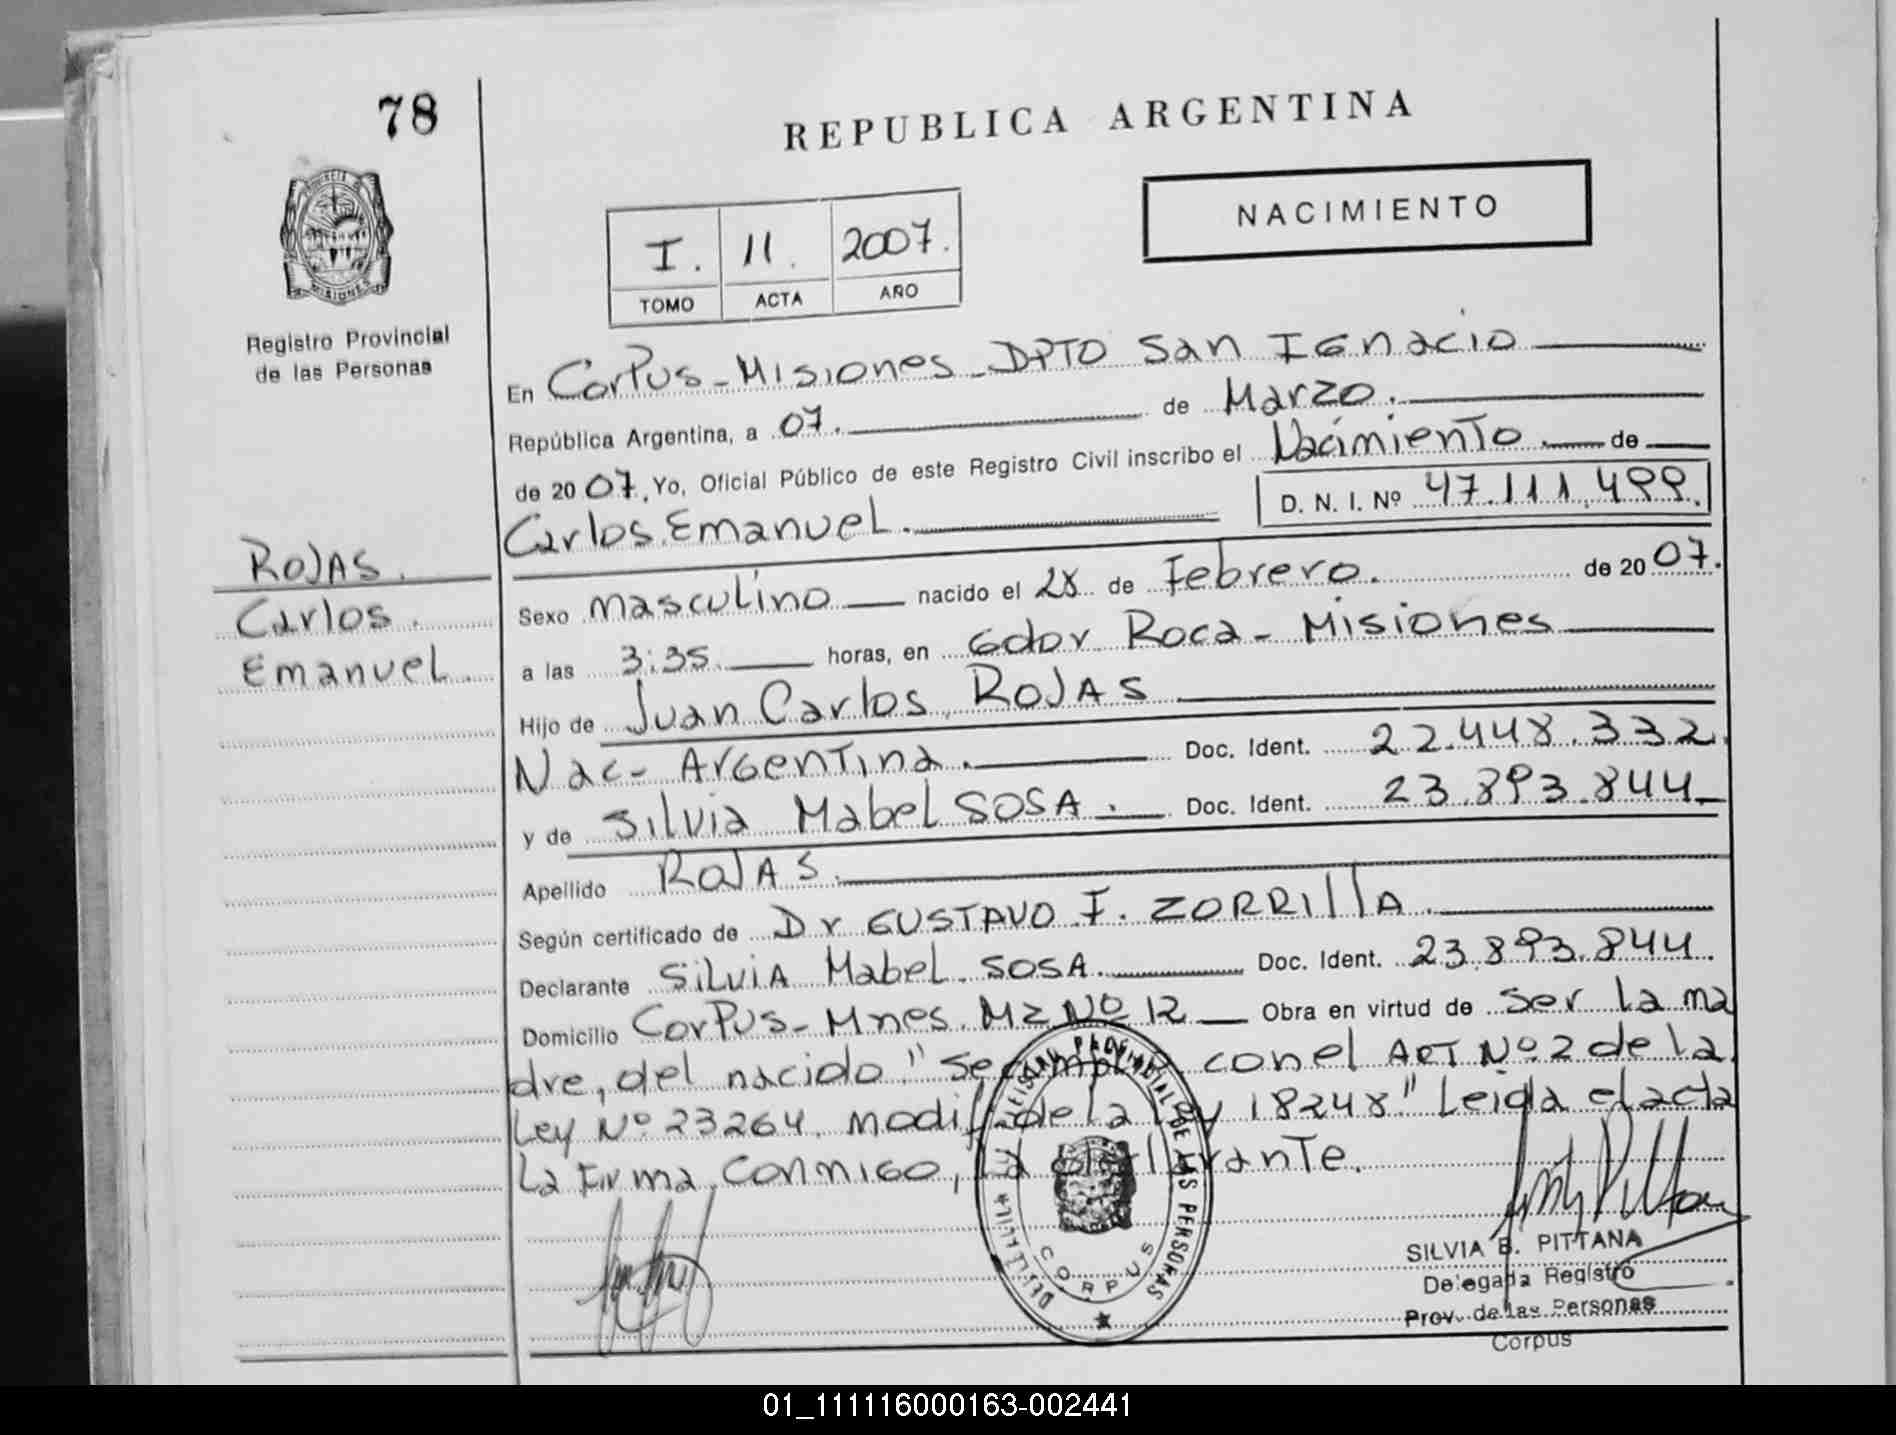 78
REPUBLICA ARGENTINA
NACIMIENTO
PROVINCIA DE
MISIONES
I. 11. 2007.
TOMO ACTA AÑO
Registro Provincial
de las Personas
En Corpus - Misiones - DPTO San Ignacio
República Argentina, a 07. de Marzo.
de 2007. Yo, Oficial Público de este Registro Civil inscribo el Nacimiento. de
Carlos Emanuel. D. N. I. Nº 47.111.499.
ROJAS.
Carlos.
Emanuel.
Sexo masculino nacido el 28 de Febrero. de 2007.
a las 3:35. horas, en Gdor Roca - Misiones
Hijo de Juan Carlos ROJAS
Nac - Argentina. Doc. Ident. 22.448.332.
y de Silvia Mabel SOSA. Doc. Ident. 23.893.844
Apellido ROJAS.
Según certificado de Dr GUSTAVO I. ZORRIllA.
Declarante SilviA Mabel SOSA. Doc. Ident. 23.893.844.
Domicilio Corpus - Mnes. Mz Nº 12 Obra en virtud de ser la ma
dre, del nacido "Se cumple con el ART Nº 2 de la
Ley Nº 23264. modif. de la Ley 18248" Leida el acta
La Firma conmigo, la declarante.
DE LAS PERSONAS
CORPUS
SILVIA B. PITTANA
Delegada Registro
Prov. de las Personas
Corpus
01_111116000163-002441